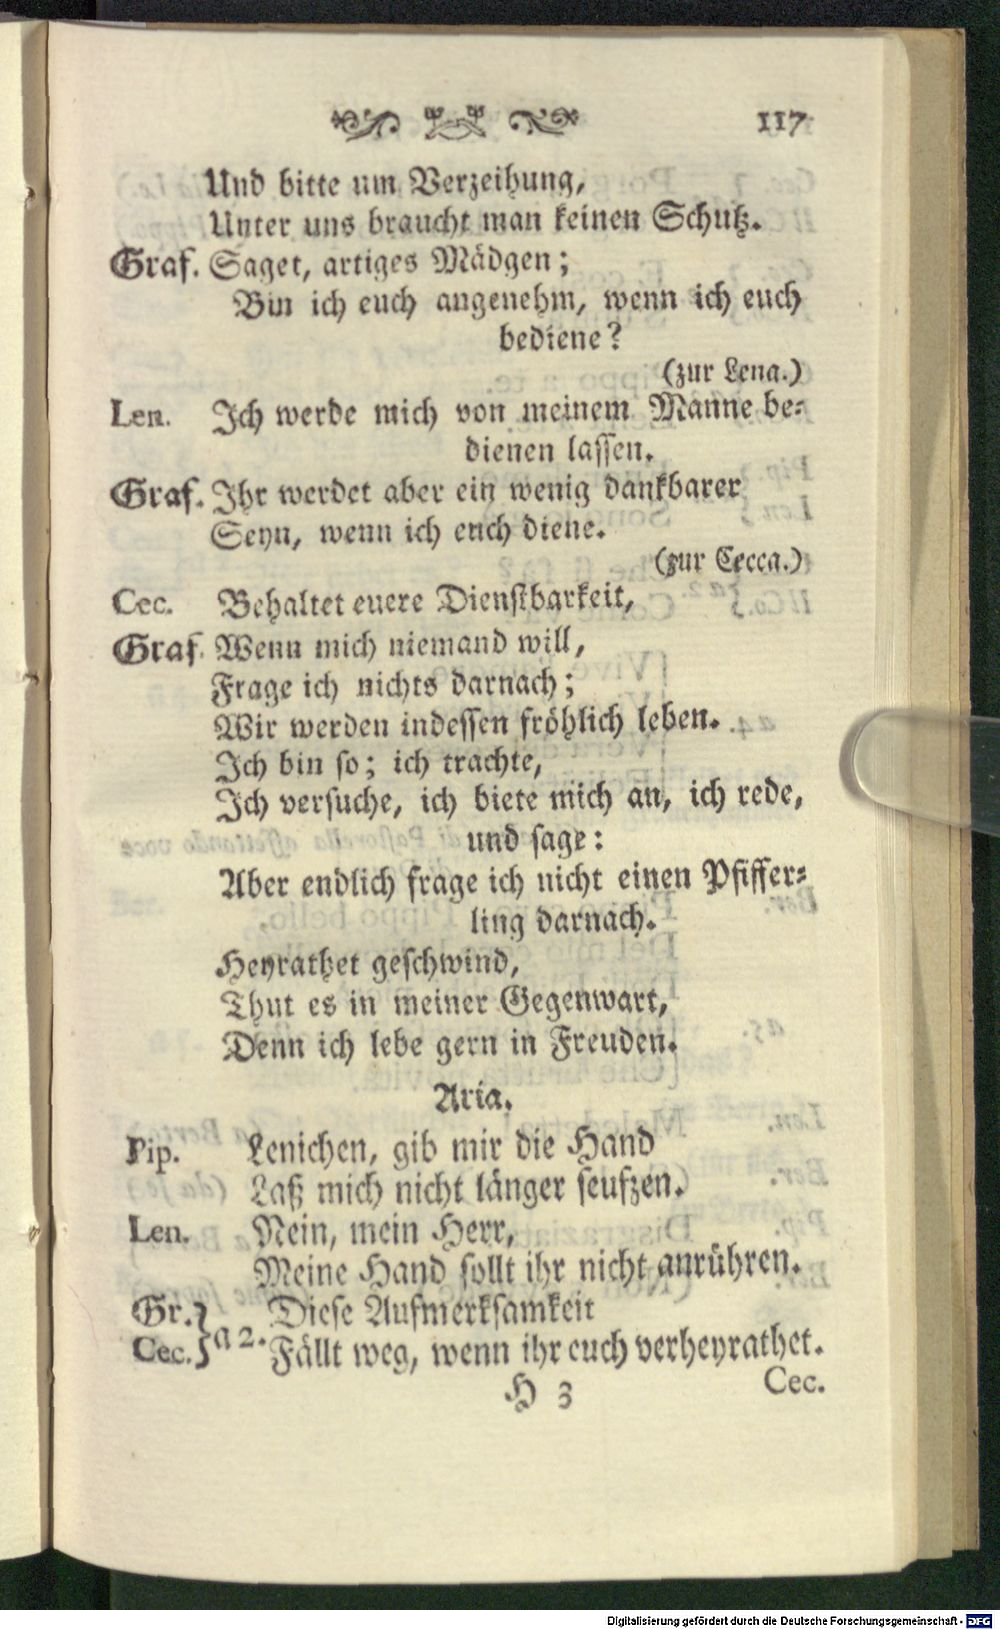 117
Und bitte um Verzeihung,
Unter uns braucht man keinen Schutz.
Graf. Saget, artiges Mädgen;
Bin ich euch angenehm, wenn ich euch
bediene?
(zur Lena.)
Len. Ich werde mich von meinem Manne be-
dienen lassen.
Graf. Ihr werdet aber ein wenig dankbarer
Seyn, wenn ich euch diene.
(zur Cecca.)
Cec. Behaltet euere Dienstbarkeit,
Graf. Wenn mich niemand will,
Frage ich nichts darnach;
Wir werden indessen fröhlich leben.
Ich bin so; ich trachte,
Ich versuche, ich biete mich an, ich rede,
und sage:
Aber endlich frage ich nicht einen Pfiffer-
ling darnach.
Heyrathet geschwind,
Thut es in meiner Gegenwart,
Denn ich lebe gern in Freuden.
Aria.
Pip. Lenichen, gib mir die Hand
Laß mich nicht länger seufzen.
Len. Nein, mein Herr,
Meine Hand sollt ihr nicht anrühren.
Gr. } Diese Aufmerksamkeit
Cec. } a 2. Fällt weg, wenn ihr euch verheyrathet.
H 3 Cec.
Digitalisierung gefördert durch die Deutsche Forschungsgemeinschaft - DFG